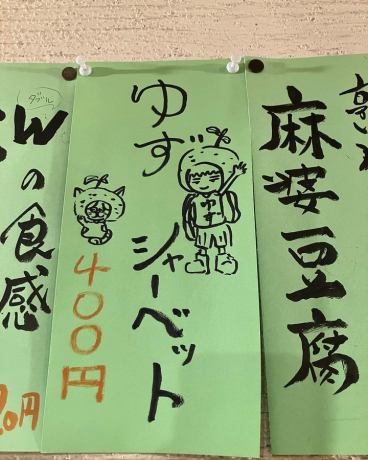 麻婆豆腐
ゆず
シャーベット
ゆず
400円
ダブル
Wの食感
0円